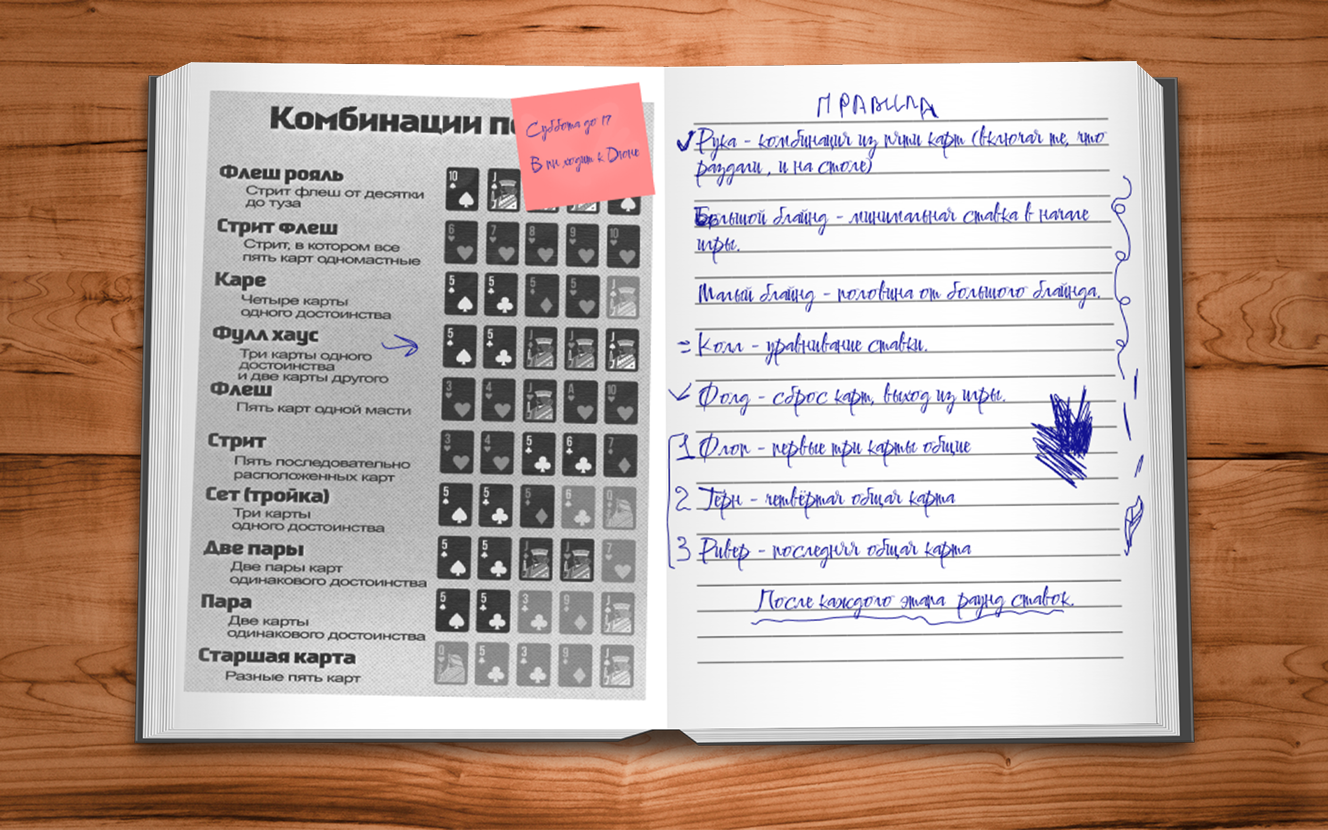 Комбинации
Флеш рояль
Стрит флеш от десятки
до туза
Стрит флеш
Стрит, в котором все
пять карт одномастные
Каре
Четыре карты
одного достоинства
Фулл хаус
Три карты одного
достоинства
и две карты другого
Флеш
Пять карт одной масти
Стрит
Пять последовательно
расположенных карт
Сет (тройка)
Три карты
одного достоинства
Две пары
Две пары карт
одинакового достоинства
Пара
Две карты
одинакового достоинства
Старшая карта
Разные пять карт
10 J
6 7 8 9 10
5 5 5 5 J
5 5 J J J
3 4 J A 10
3 4 5 6 7
5 5 5 6 Q
5 5 J J 7
5 5 3 9 J
Q 5 3 9 J
Суббота до 17
В пн ходит к Дюне
ПРАВИЛА
Рука - комбинация из пяти карт (включая те, что
раздали, и на столе)
Большой блайнд - минимальная ставка в начале
игры.
Малый блайнд - половина от большого блайнда.
= Колл - уравнивание ставки.
Фолд - сброс карт, выход из игры.
1 Флоп - первые три карты общие
2 Терн - четвёртая общая карта
3 Ривер - последняя общая карта
После каждого этапа раунд ставок.